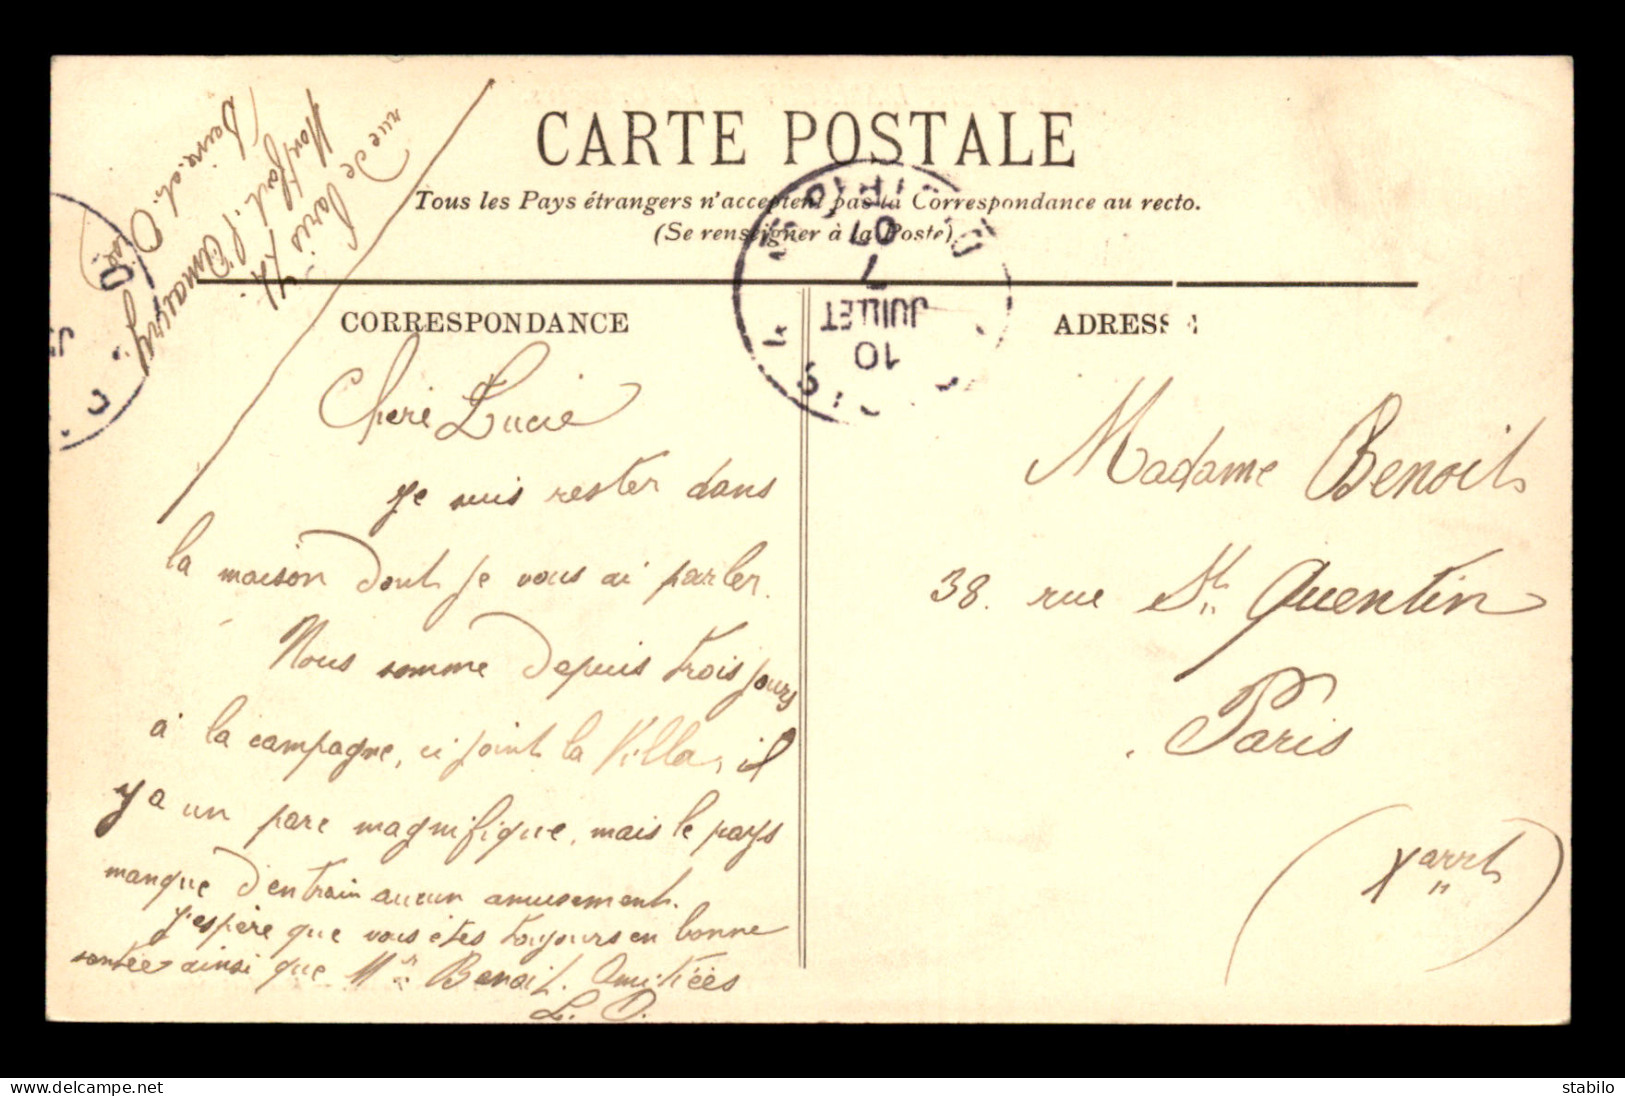 CARTE POSTALE
Tous les Pays étrangers n'acceptent pas la Correspondance au recto.
(Se renseigner à la Poste)
CORRESPONDANCE
ADRESSE
rue de
Paris 71
Montfort l'Amaury
Seine et Oise
Cheré Lucie
Je suis rester dans
la maison dont je vous ai parler.
Nous somme depuis trois jours
a la campagne, ci joint la Villa, il
y a un parc magnifique, mais le pays
manque d'entrain aucun amusement.
J'espère que vous êtes toujours en bonne
santée ainsi que Mr Benoit. Amitiées
L. D.
Madame Benoit
38. rue St. Quentin
Paris
(X arrt)
PARIS
10
JUILLET
07
DISTRIBUTION
stabilo
delcampe.net